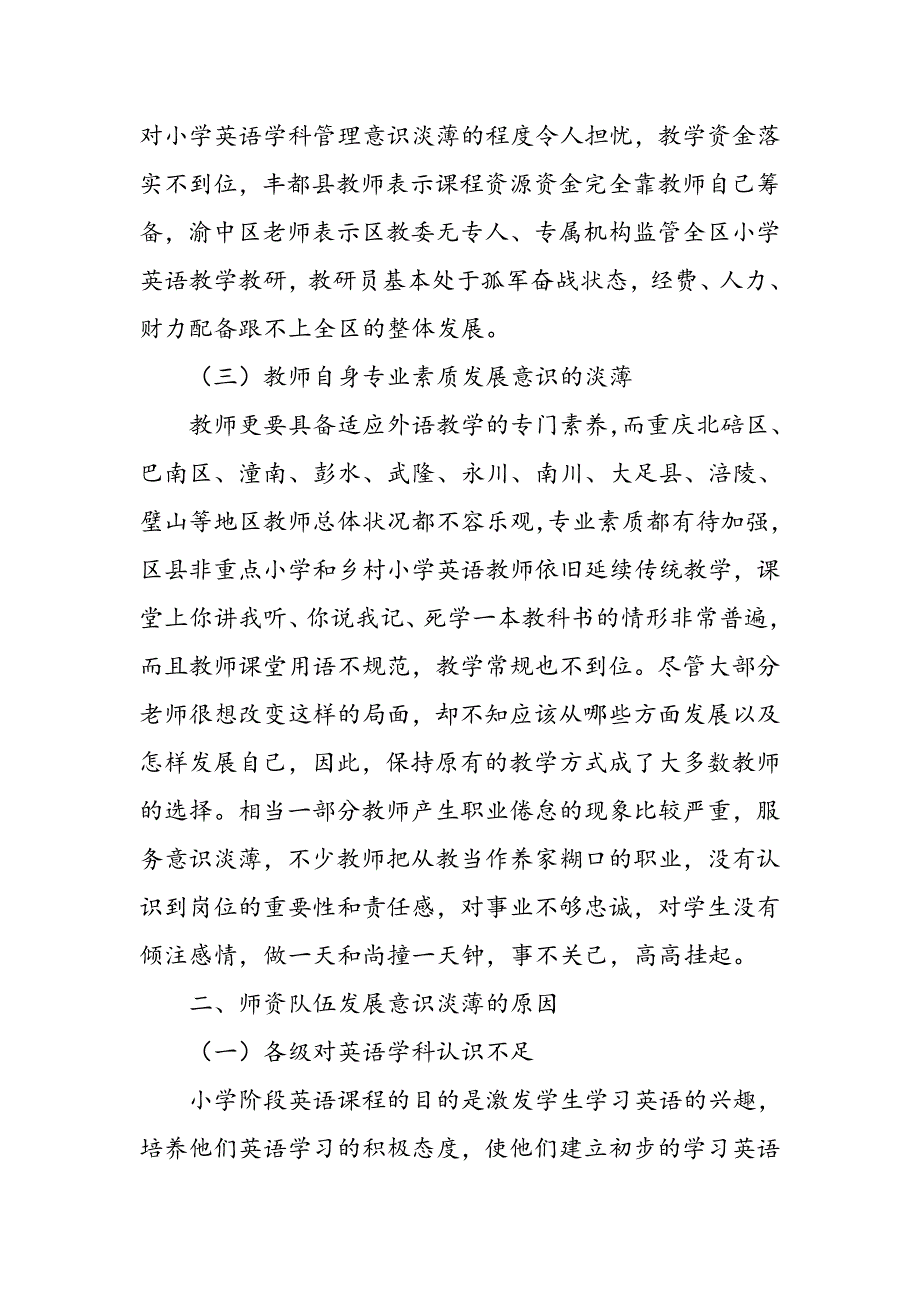 对小学英语学科管理意识淡薄的程度令人担忧，教学资金落
实不到位，丰都县教师表示课程资源资金完全靠教师自己筹
备，渝中区老师表示区教委无专人、专属机构监管全区小学
英语教学教研，教研员基本处于孤军奋战状态，经费、人力、
财力配备跟不上全区的整体发展。
（三）教师自身专业素质发展意识的淡薄
教师更要具备适应外语教学的专门素养，而重庆北碚区、
巴南区、潼南、彭水、武隆、永川、南川、大足县、涪陵、
璧山等地区教师总体状况都不容乐观，专业素质都有待加强，
区县非重点小学和乡村小学英语教师依旧延续传统教学，课
堂上你讲我听、你说我记、死学一本教科书的情形非常普遍，
而且教师课堂用语不规范，教学常规也不到位。尽管大部分
老师很想改变这样的局面，却不知应该从哪些方面发展以及
怎样发展自己，因此，保持原有的教学方式成了大多数教师
的选择。相当一部分教师产生职业倦怠的现象比较严重，服
务意识淡薄，不少教师把从教当作养家糊口的职业，没有认
识到岗位的重要性和责任感，对事业不够忠诚，对学生没有
倾注感情，做一天和尚撞一天钟，事不关己，高高挂起。
二、师资队伍发展意识淡薄的原因
（一）各级对英语学科认识不足
小学阶段英语课程的目的是激发学生学习英语的兴趣，
培养他们英语学习的积极态度，使他们建立初步的学习英语